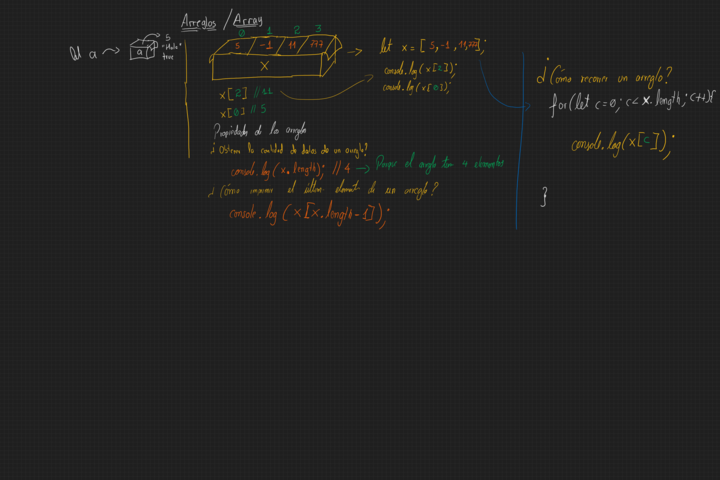 Arreglos / Array
let a
a
5
"Hola"
true
0 1 2 3
5 -1 11 777
x
let x = [ 5, -1, 11, 777 ];
console.log(x[2]);
console.log(x[0]);
x[2] // 11
x[0] // 5
Propiedades de los arreglos
¿Obtener la cantidad de datos de un arreglo?
console.log(x.length); // 4
Porque el arreglo tiene 4 elementos
¿Cómo imprimir el último elemento de un arreglo?
console.log(x[x.length-1]);
¿Cómo recorrer un arreglo?
for(let c=0; c< x.length; c++){
console.log(x[c]);
}